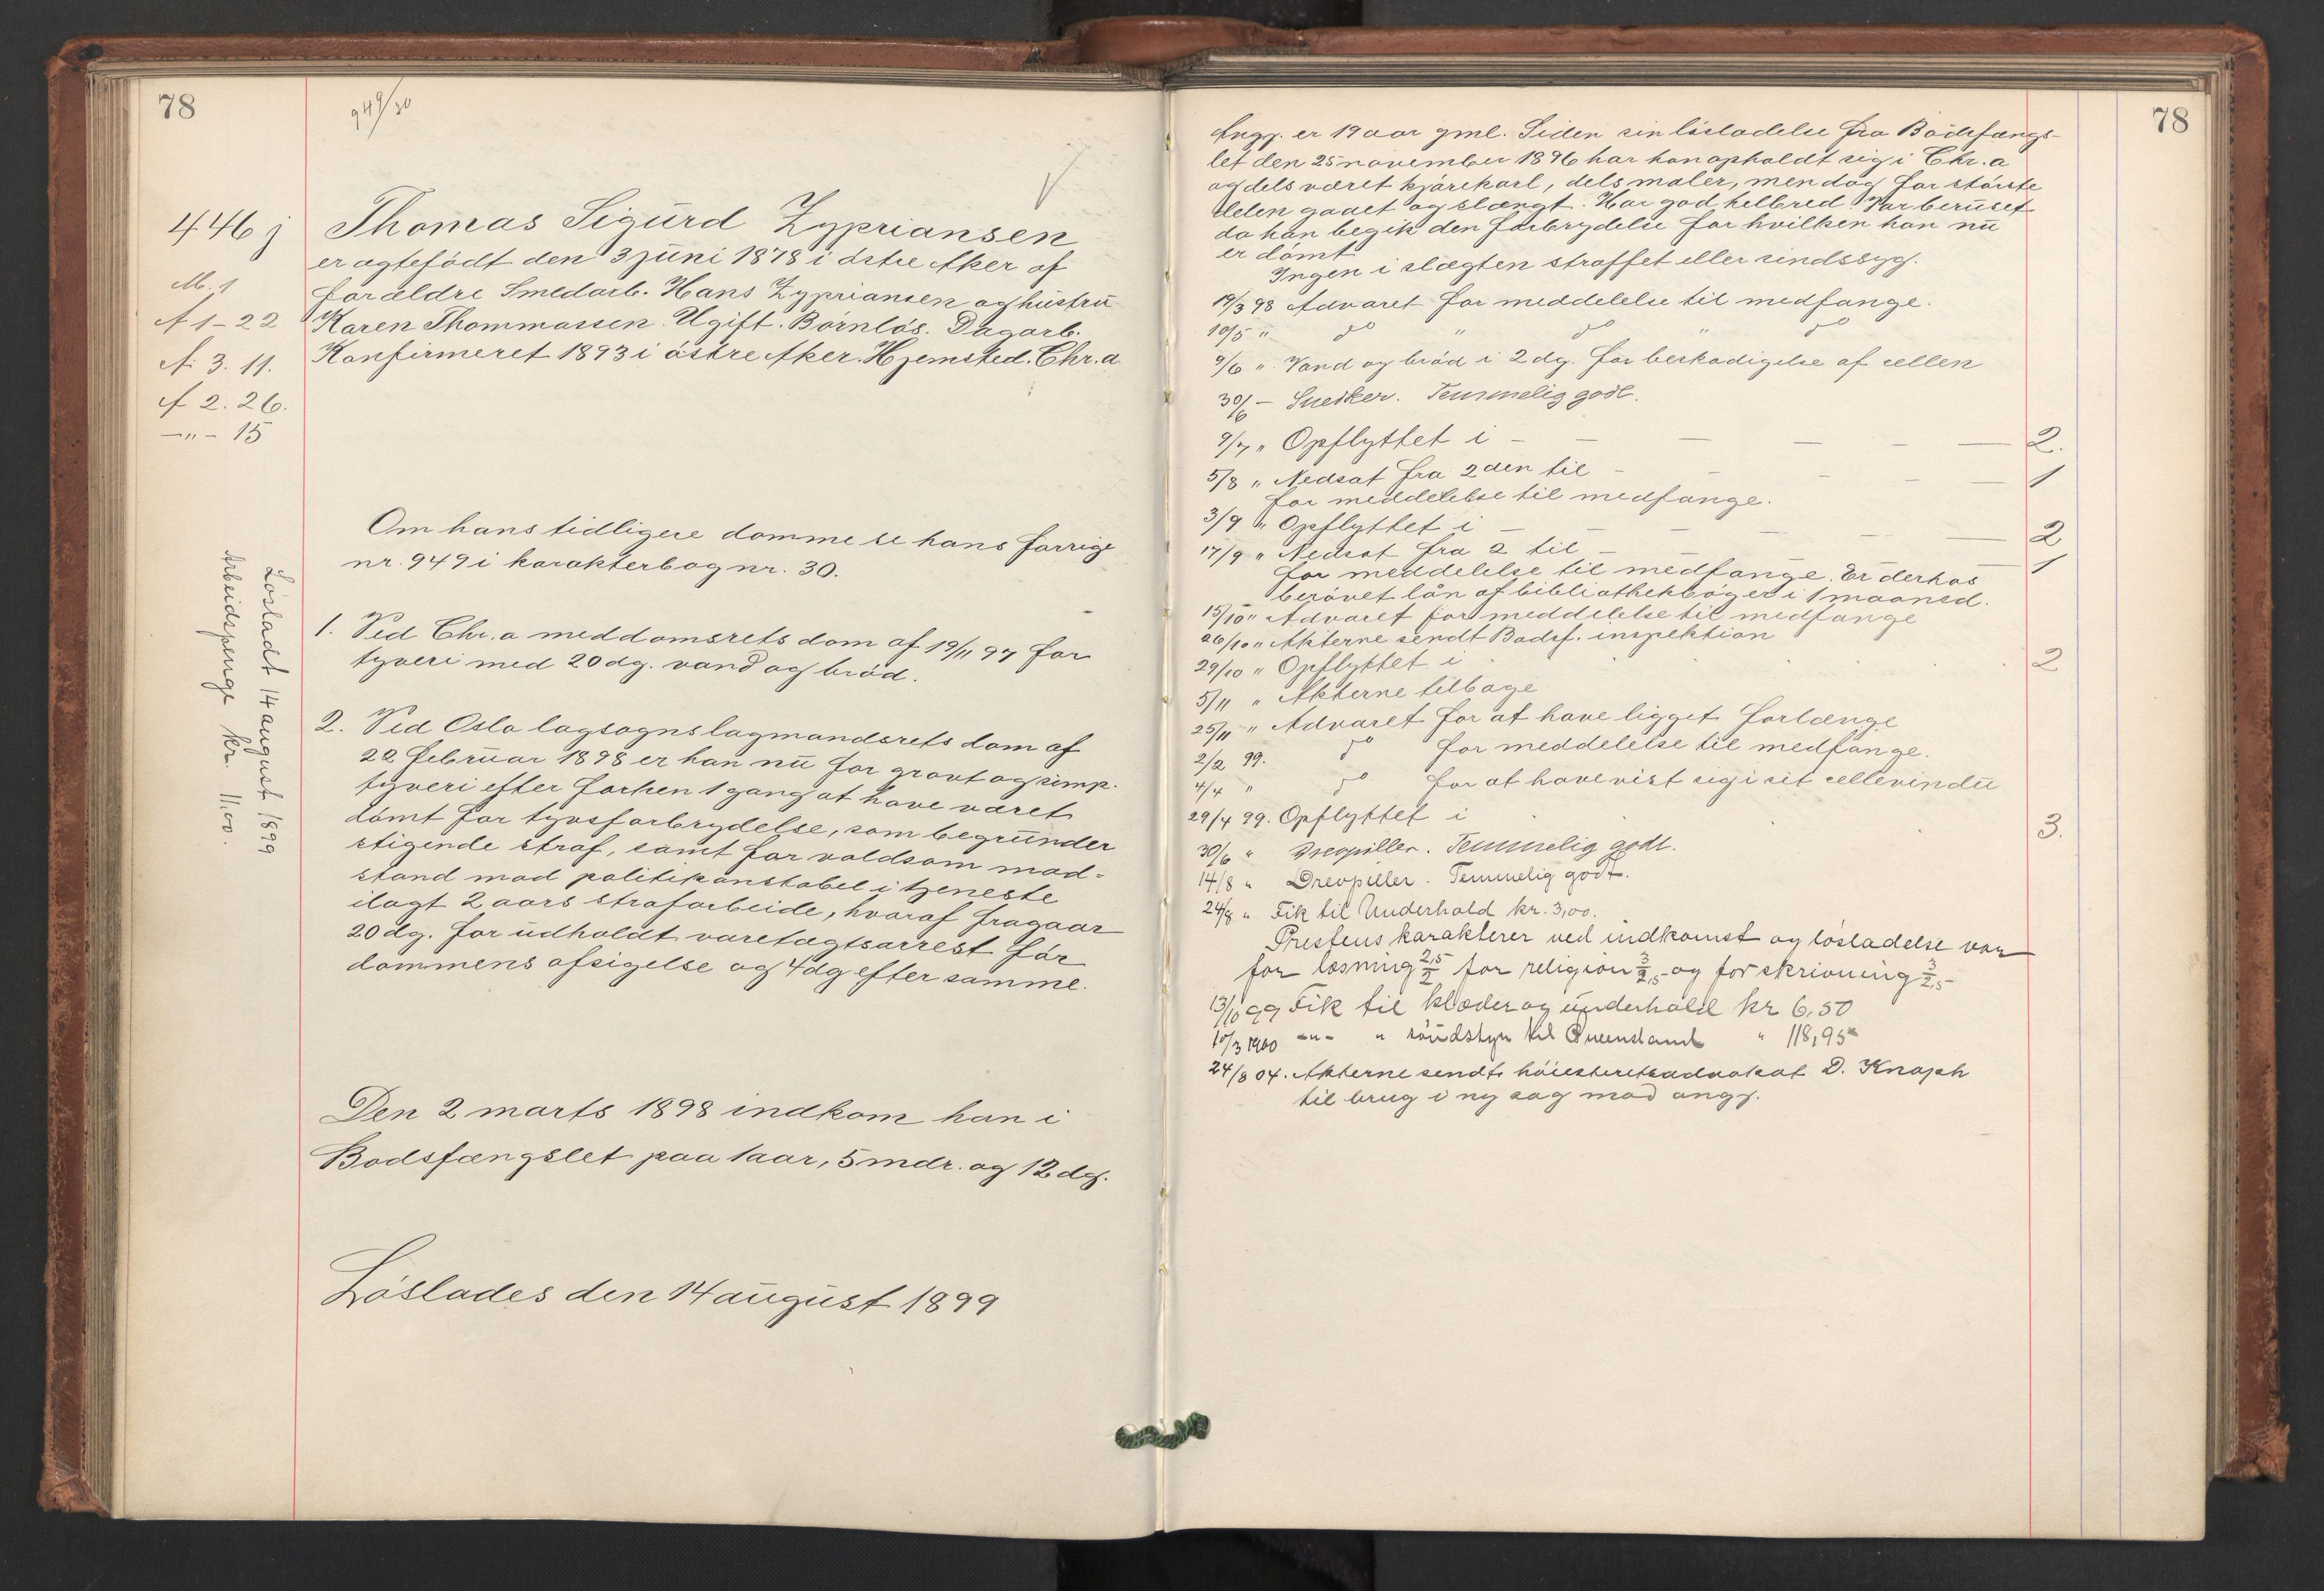 78
949/30
446 j
M. 1
A 1-22
A. 3. 11.
A 2. 26.
—"— 15
Thomas Sigurd Zypriansen
er ægtefødt den 3 juni 1878 i østre Aker af
forældre Smedarb. Hans Zypriansen og hustru
Karen Thommassen. Ugift. Børnløs. Dagarb.
Konfirmeret 1893 i østre Aker. Hjemsted. Chr.a
Om hans tidligere domme se hans forrige
nr. 949 i karakterbog nr. 30.
1. Ved Chr.a meddomsrets dom af 19/11 97 for
tyveri med 20 dg. vand og brød.
2. Ved Oslo lagsogns lagmandsrets dom af
22 februar 1898 er han nu for grovt og simp.
tyveri efter forhen 1 gang at have været
dømt for tyvsforbrydelse, som begrunder
stigende straf, samt for voldsom mod-
stand mod politikonstabel i tjeneste
ilagt 2 aars strafarbeide, hvoraf fragaar
20 dg. for udholdt varetægtsarrest før
dommens afsigelse og 4 dg efter samme.
Den 2 marts 1898 indkom han i
Bodsfængslet paa 1 aar, 5 mdr. og 12 dg.
Løslades den 14 august 1899
Løsladt 14 august 1899
Arbeidspenge kr. 11.00.
78
Angj. er 19 aar gml. Siden sin løsladelse fra Bodsfængs-
let den 25 november 1896 har han opholdt sig i Chr.a
og dels været kjørekarl, dels maler, men dog for største
delen gaaet og slængt. Har god helbred. Var beruset
da han begik den forbrydelse for hvilken han nu
er dømt
Ingen i slægten straffet eller sindssyg.
19/3 98 Advaret for meddelelse til medfange.
10/5 " do " do " do
9/6 " Vand og brød i 2 dg. for beskadigelse af cellen
30/6 — Snedker. Temmelig godt.
9/7 " Opflyttet i — — — — — — 2.
5/8 " Nedsat fra 2den til — — — — — 1
for meddelelse til medfange.
3/9 " Opflyttet i — — — — — — 2
17/9 " Nedsat fra 2 til — — — — — 1
for meddelelse til medfange. Er derhos
berøvet lån af bibliothekbøger i 1 maaned.
15/10 " Advaret for meddelelse til medfange
26/10 " Akterne sendt Bodsf. inspektion
29/10 " Opflyttet i . . . . . 2
5/11 " Akterne tilbage
25/11 " Advaret for at have ligget forlænge
2/2 99. do for meddelelse til medfange.
4/4 " do for at have vist sig i sit cellevindu
29/4 99. Opflyttet i . . . 3.
30/6 " Drevpiller. Temmelig godt.
14/8 " Drevpiller. Temmelig godt.
24/8 " Fik til Underhold kr. 3,00.
Prestens karakterer ved indkomst og løsladelse var
for læsning 2,5/2 for religion 3/2,5 og for skrivning 3/2,5
13/10 99 Fik til klæder og underhold kr 6,50
10/3 1900 —"— " til Queensland " 118,95
24/8 04. Akterne sendt høiesteretsadvokat D. Knoph
til brug i ny sag mod angj.